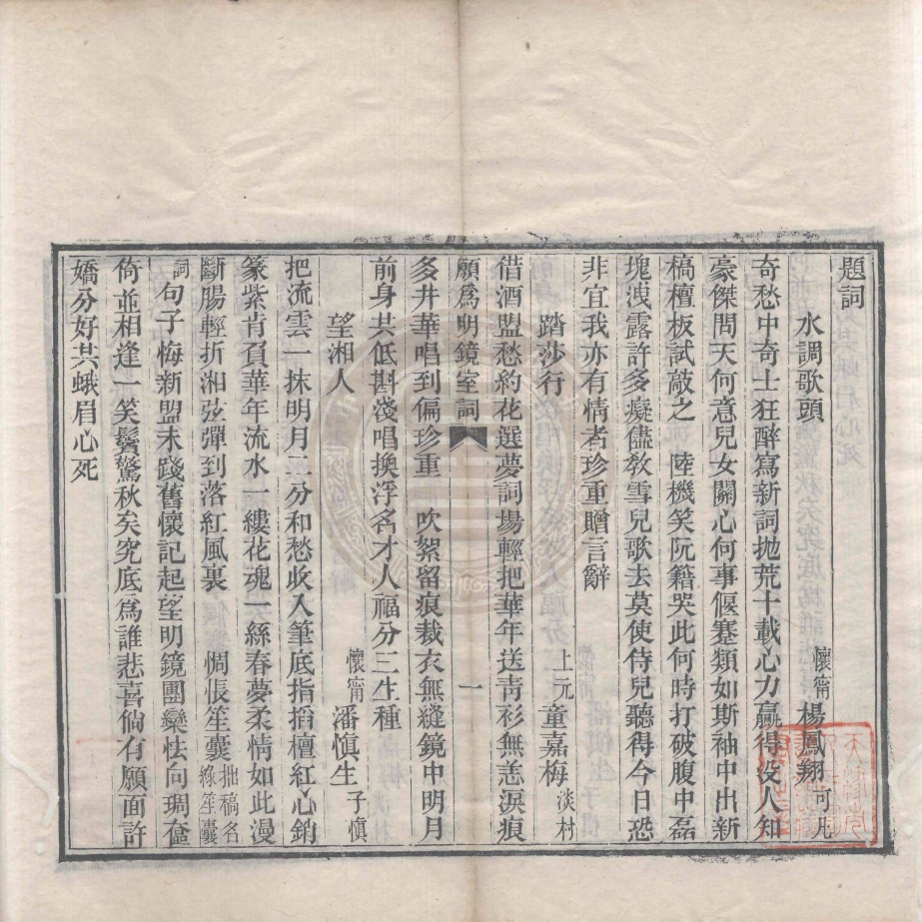 題詞
水調歌頭 懷甯楊鳳翔可凡
奇愁中奇士狂醉寫新詞拋荒十載心力贏得没人知
豪傑問天何意兒女關心何事偃蹇類如斯袖中出新
稿檀板試敲之 陸機笑阮籍哭此何時打破腹中磊
塊洩露許多癡儘敎雪兒歌去莫使侍兒聽得今日恐
非宜我亦有情者珍重贈言辭
踏莎行 上元童嘉梅淡村
借酒盟愁約花選夢詞場輕把華年送靑衫無恙淚痕
願爲明鏡室詞 一
多井華唱到偏珍重 吹絮留痕裁衣無縫鏡中明月
前身共低斟淺唱換浮名才人福分三生種
望湘人 懷甯潘愼生子愼
把流雲一抹明月二分和愁收入筆底指搯檀紅心銷
篆紫肯負華年流水一縷花魂一絲春夢柔情如此漫
斷腸輕折湘弦彈到落紅風裏 惆悵笙囊拙稿名緣笙囊
詞句子悔新盟未踐舊懷記起望明鏡團欒怯向琱奩
倚並相逢一笑鬢驚秋矣究底爲誰悲喜倘有願面許
嬌分好共蛾眉心死